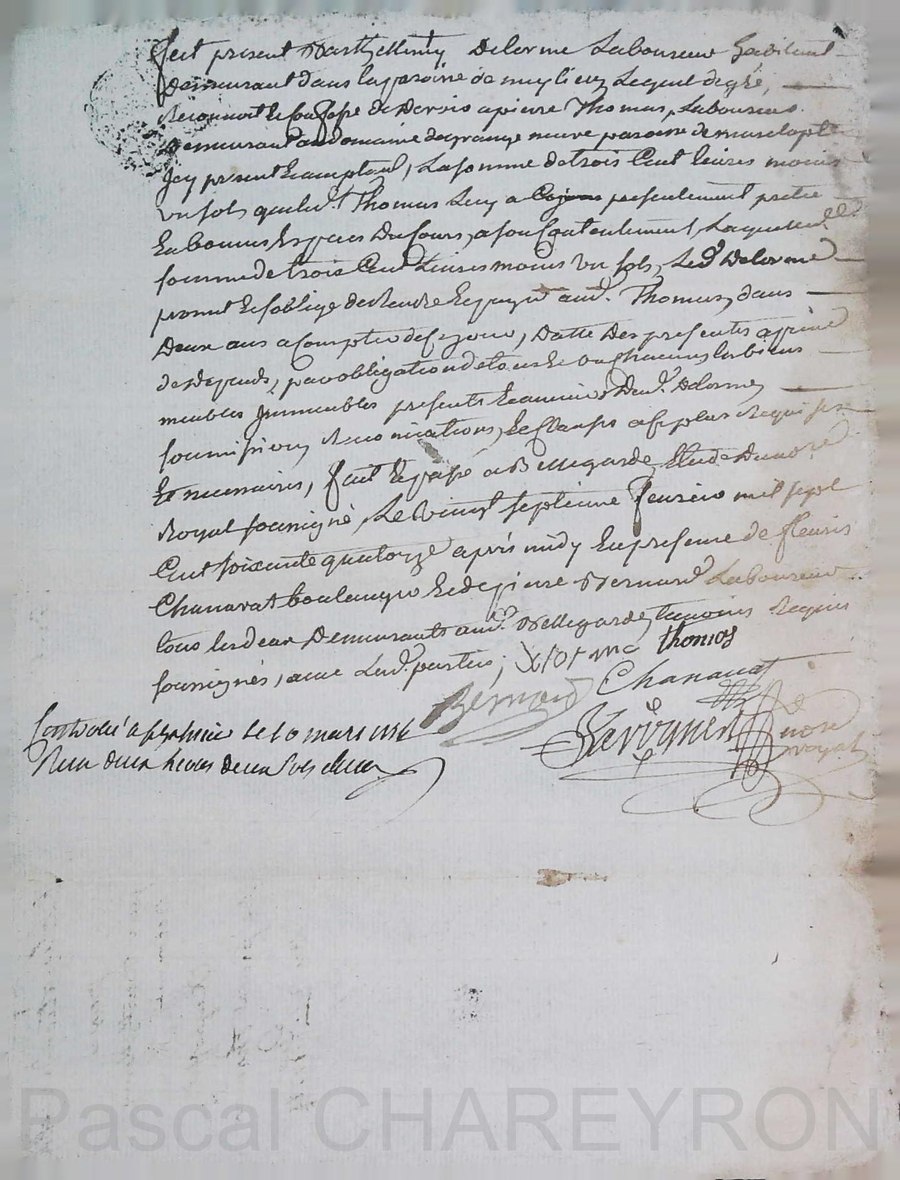 fut present Barthellemy Delorme Laboureur habitant
Demeurant dans la paroisse de muzlieu Lequel de gré,
Reconnoit et Confesse de Devoir a pierre Thomas, Laboureur
Demeurant au domaine de grange neuve paroisse de
Icy present Lacceptant, La somme de trois Cent livres moins
un sols que led.t Thomas Luy a presentement preté
En bonnes Especes Du Cours, a son Contentement, Laquelle d.
somme de trois Cent Livres moins un sols, Led.t Delorme
promet et soblige de Rendre et payer aud.t Thomas, dans
Deux ans a Compter de ce jour, Datte Des presentes a peine
de depends, par obligation de tous et un Chacuns les biens
meubles Immeubles presents et avenir Dud.t Delorme,
soumissions Renonciations, et Clauses a ce plus Requises
et necessaires, fait et passé a Bellegarde Etude Du no.re
Royal soussigné, Le vingt septieme feuvrier mil sept
Cent soixante quatorze après midy En presence de fleuris
Chanavat boulanger et de pierre Bernard Laboureur
tous les deux Demeurants aud.t Bellegarde, temoins Requis
soussignés, avec Lesd. parties; thomas
Bernard Chanavat
Controlé a le 10 mars 1774
Reçu deux livres deux sols
no.re
royal
Pascal CHAREYRON